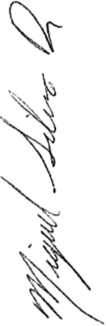 Miguel Silva R